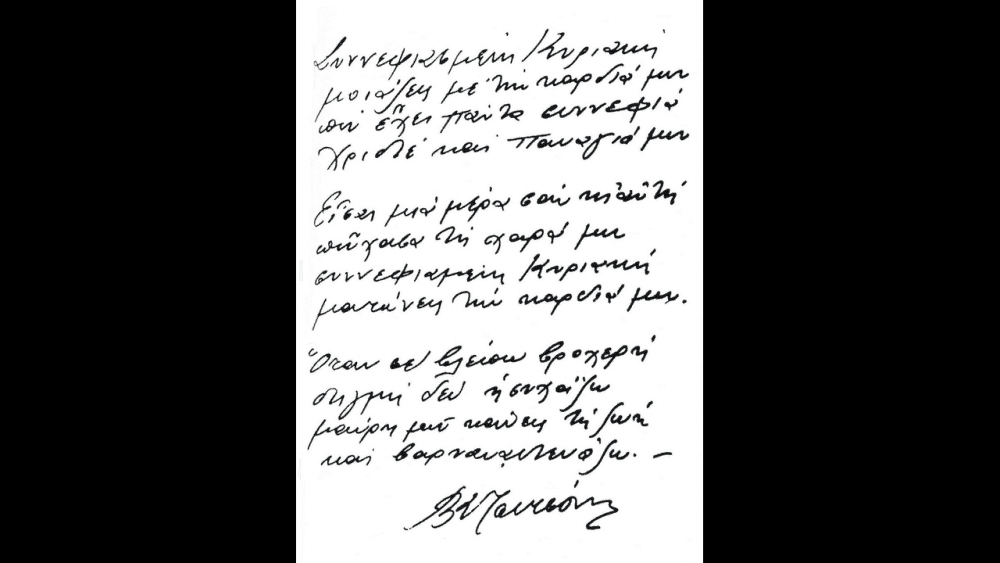 Συννεφιασμένη Κυριακή
μοιάζεις με την καρδιά μου
που έχει πάντα συννεφιά
Χριστέ και Παναγιά μου
Είσαι μιά μέρα σαν κι αυτή
που χασα τη χαρά μου
συννεφιαμένη Κυριακή
ματώνεις την καρδιά μου.
Όταν σε βλέπω βροχερή
στιγμή δεν ησυχάζω
μαύρη μού κάνεις τη ζωή
και βαρυαναστενάζω. –
Β Τσιτσάνης